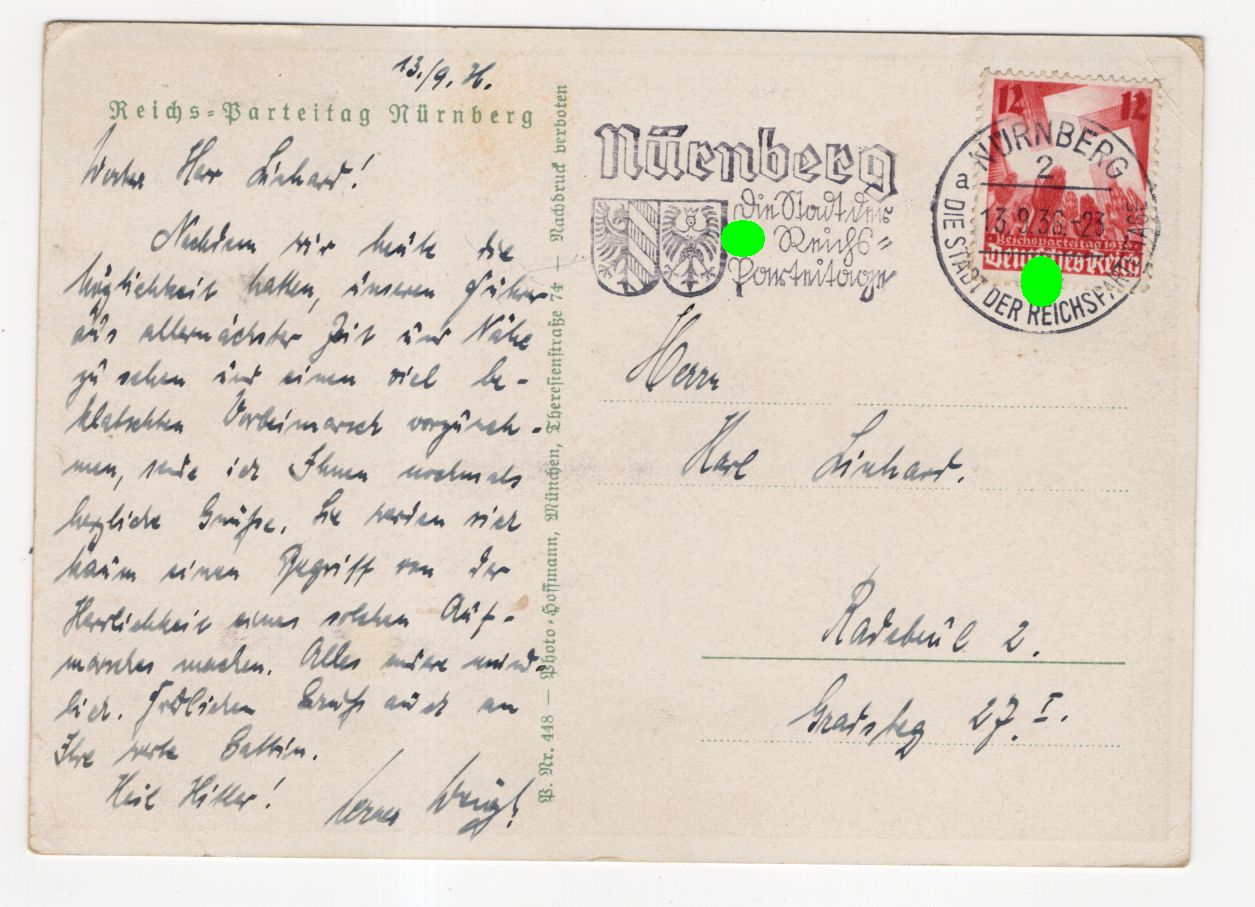 13./9.36.
Reichs-Parteitag Nürnberg
Werter Herr Linhard!
Nachdem wir heute die
Möglichkeit hatten, unseren Führer
aus allernächster Zeit und Nähe
zu sehen und einen viel be-
klatschten Vorbeimarsch vorzuneh-
men, sende ich Ihnen nochmals
herzliche Grüße. Sie werden sich
kaum einen Begriff von der
Herrlichkeit eines solchen Auf-
marsches machen. Alles andre münd-
lich. Fröhlichen Gruß auch an
Ihre werte Gattin.
Heil Hitler!
P. Nr. 448 — Photo-Hoffmann, München, Theresienstraße 74 — Nachdruck verboten
Nürnberg
die Stadt der
Reichs=
Parteitage
12 12
Reichsparteitag 1936
Deutsches Reich
NÜRNBERG
2
a
13.9.36.-23
DIE STADT DER REICHSPARTEITAGE
Herrn
Karl Linhard.
Radebeul 2.
Gradsteg 27 I.